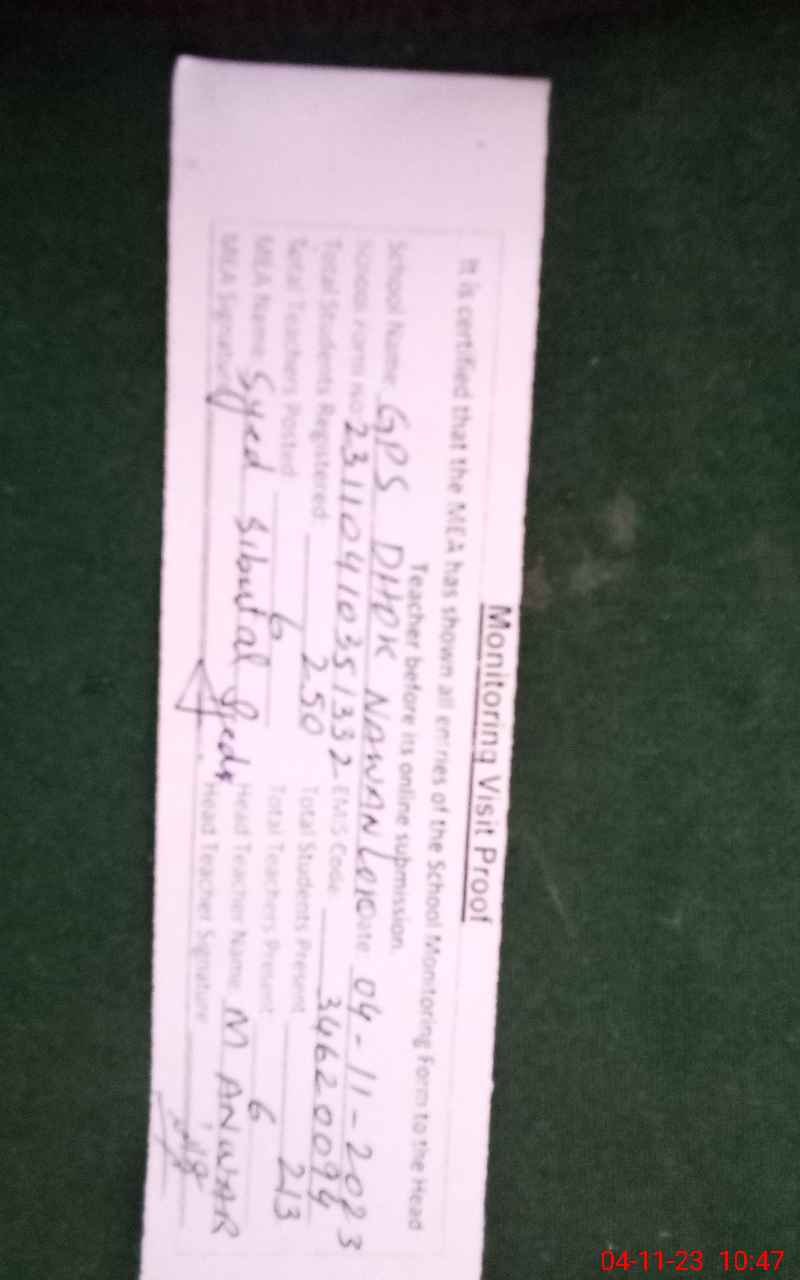 Monitoring Visit Proof
It is certified that the MEA has shown all entries of the School Monitoring Form to the Head
Teacher before its online submission.
School Name: GPS DHOK NAWAN LOK Date: 04-11-2023
School Form No: 23110410351332 EMIS Code: 34620094
Total Students Registered: 250 Total Students Present 213
Total Teachers Posted: 6 Total Teachers Present: 6
MEA Name: Syed Head Teacher Name: M ANWAR
MEA Signature Head Teacher Signature
04-11-23 10:47